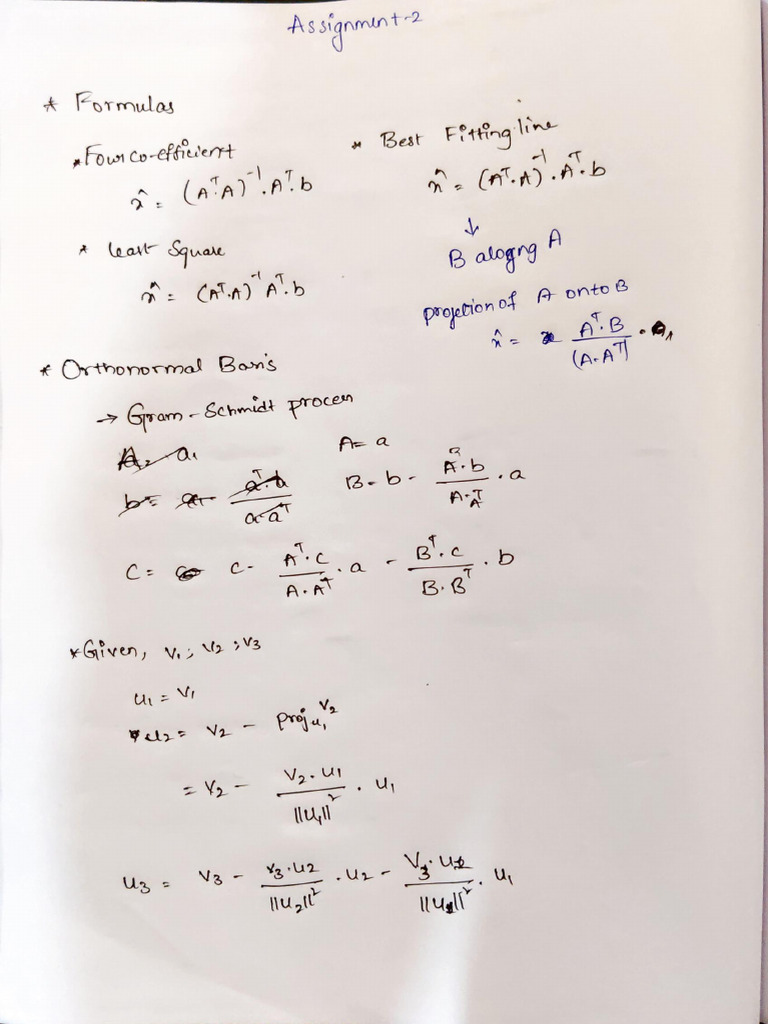 Assignment-2
* Formulas
* Four co-efficient
x̂ = (AᵀA)⁻¹.Aᵀ.b
* Least Square
x̂ = (Aᵀ.A)⁻¹ Aᵀ.b
* Best Fitting line
x̂ = (Aᵀ.A)⁻¹.Aᵀ.b
↓
B alogng A
projection of A onto B
x̂ = Aᵀ.B / (A.Aᵀ) .
* Orthonormal Basis
→ Gram-Schmidt process
A = a
B = b - A.b / A.Aᵀ . a
C = c - Aᵀ.c / A.Aᵀ . a - Bᵀ.c / B.Bᵀ . b
* Given, v₁; v₂; v₃
u₁ = v₁
u₂ = v₂ - proj u₁ v₂
= v₂ - v₂.u₁ / ||u₁||² . u₁
u₃ = v₃ - v₃.u₂ / ||u₂||² . u₂ - v₃. / ||u₁||² . u₁